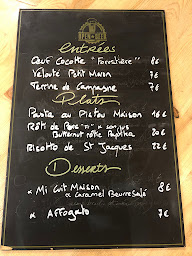 OPEN BEER
Entrées
Oeuf Cocotte "Forestière" 7€
Velouté Petit Maison 7€
Terrine de Campagne 7€
Plats
Pasta au Pistou Maison 16€
Rôti de Porc son jus
Butternut rôtie Paprika 20€
Risotto de St Jacques 22€
Desserts
Mi Cuit Maison
Caramel Beurre Salé 8€
Affogato 7€